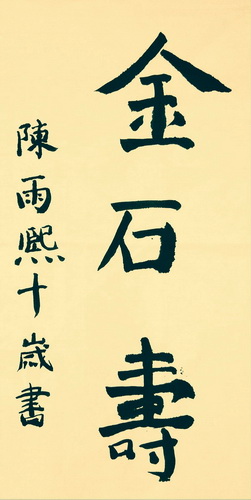 金石壽
陳雨熙十歲書